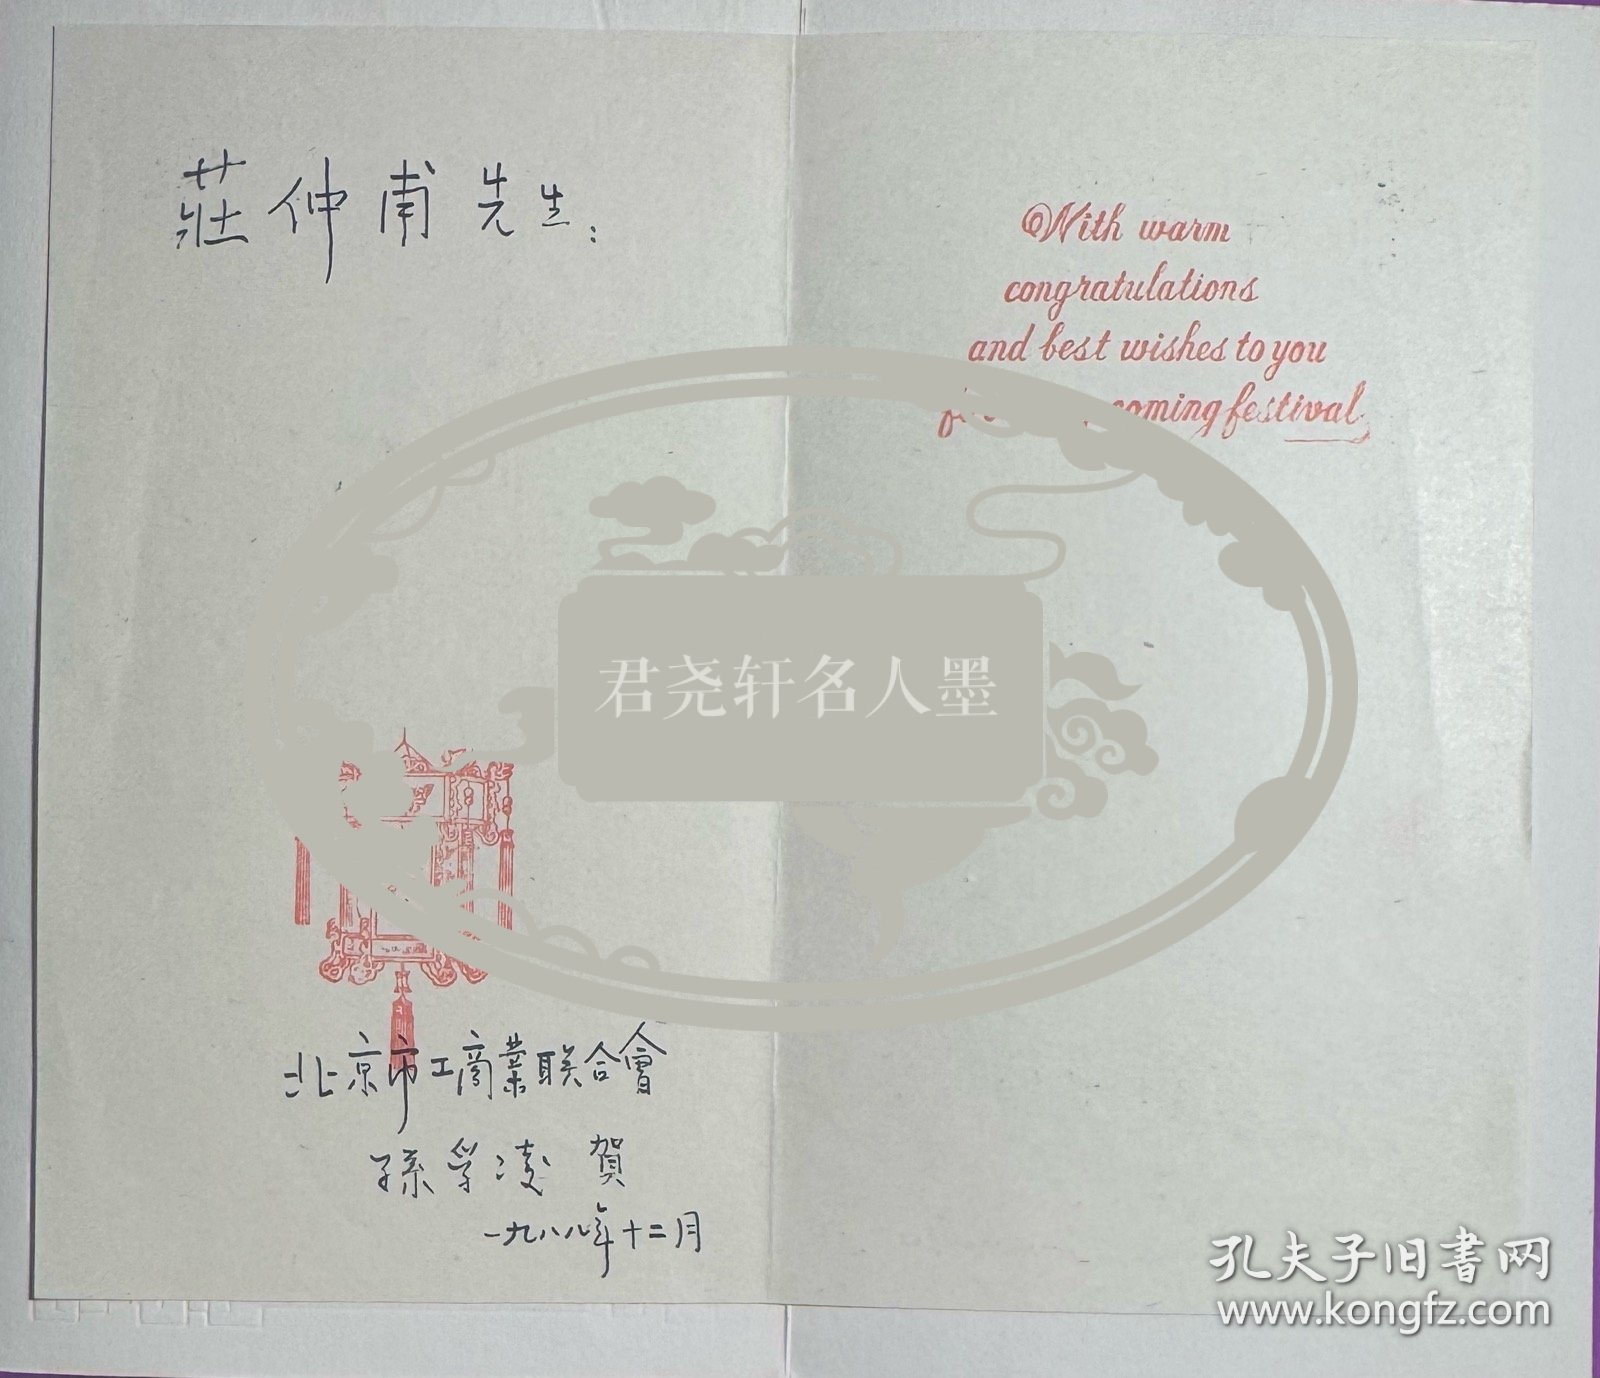 莊仲甫先生：
With warm
congratulations
and best wishes to you
coming festival
君尧轩名人墨
北京市工商業联合會
孫孚凌 賀
一九八八年十二月
孔夫子旧書网
www.kongfz.com